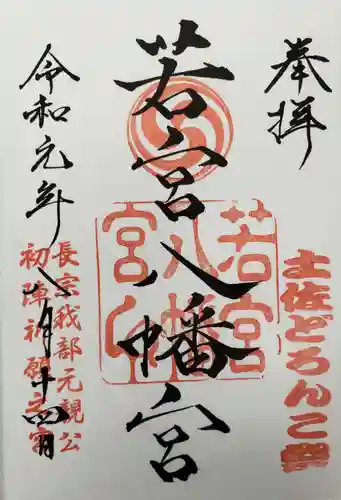 奉拝
土佐どろんこ祭
若宮八幡宮
若宮八幡宮印
長宗我部元親公
初陣祈願之宮
令和元年八月十四日